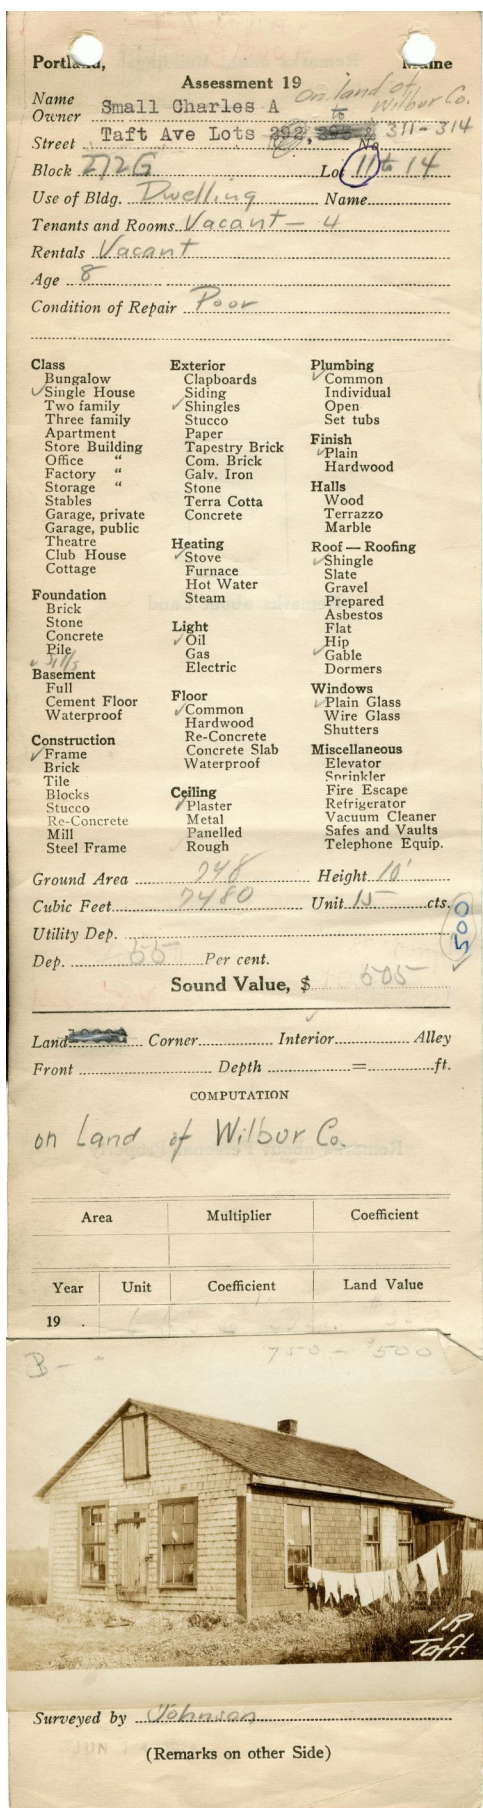 Portland, Maine
Assessment 19
on land of
Wilbur Co.
Name
Owner Small Charles A
to
Street Taft Ave Lots 292, 395 & No 311-314
Block 272G Lot 11 to 14
Use of Bldg. Dwelling Name
Tenants and Rooms Vacant - 4
Rentals Vacant
Age 8
Condition of Repair Poor
Class
Bungalow
✓Single House
Two family
Three family
Apartment
Store Building
Office "
Factory "
Storage "
Stables
Garage, private
Garage, public
Theatre
Club House
Cottage
Foundation
Brick
Stone
Concrete
Pile
✓ Sills
Basement
Full
Cement Floor
Waterproof
Construction
✓Frame
Brick
Tile
Blocks
Stucco
Re-Concrete
Mill
Steel Frame
Exterior
Clapboards
Siding
✓Shingles
Stucco
Paper
Tapestry Brick
Com. Brick
Galv. Iron
Stone
Terra Cotta
Concrete
Heating
✓Stove
Furnace
Hot Water
Steam
Light
✓Oil
Gas
Electric
Floor
✓Common
Hardwood
Re-Concrete
Concrete Slab
Waterproof
Ceiling
✓Plaster
Metal
Panelled
Rough
Plumbing
✓Common
Individual
Open
Set tubs
Finish
✓Plain
Hardwood
Halls
Wood
Terrazzo
Marble
Roof — Roofing
✓Shingle
Slate
Gravel
Prepared
Asbestos
Flat
Hip
✓Gable
Dormers
Windows
✓Plain Glass
Wire Glass
Shutters
Miscellaneous
Elevator
Sprinkler
Fire Escape
Refrigerator
Vacuum Cleaner
Safes and Vaults
Telephone Equip.
Ground Area 748 Height 10'
Cubic Feet 7480 Unit 15 cts.
500
Utility Dep.
Dep. 55 Per cent.
Sound Value, $ 505
Land Corner Interior Alley
Front Depth = ft.
COMPUTATION
on Land of Wilbur Co.
Area Multiplier Coefficient
Year Unit Coefficient Land Value
19 .
B-
750 - $500
1R
Taft.
Surveyed by Johnson
(Remarks on other Side)